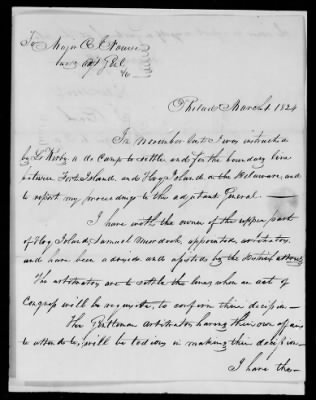 To Major C. J. Nourse
acting adjt Genl
Philad March 1. 1824
In November last I was instructed
by Lt Kirby a de Camp to settle and fix the boundary line
between Fort Island, and Hog Island on the Delaware, and
to report my proceedings to the adjutant General. —
I have with the owner of the upper part
of Hog Island, Samuel Murdock, appointed arbitrators,
and have been advised and assisted by the district attorney
The arbitrators are to settle the lines when an act of
Congress will be requisite, to confirm their decision —
The Gentlemen arbitrators having their own affairs
to attend to, will be tedious in making their decision —
I have the —